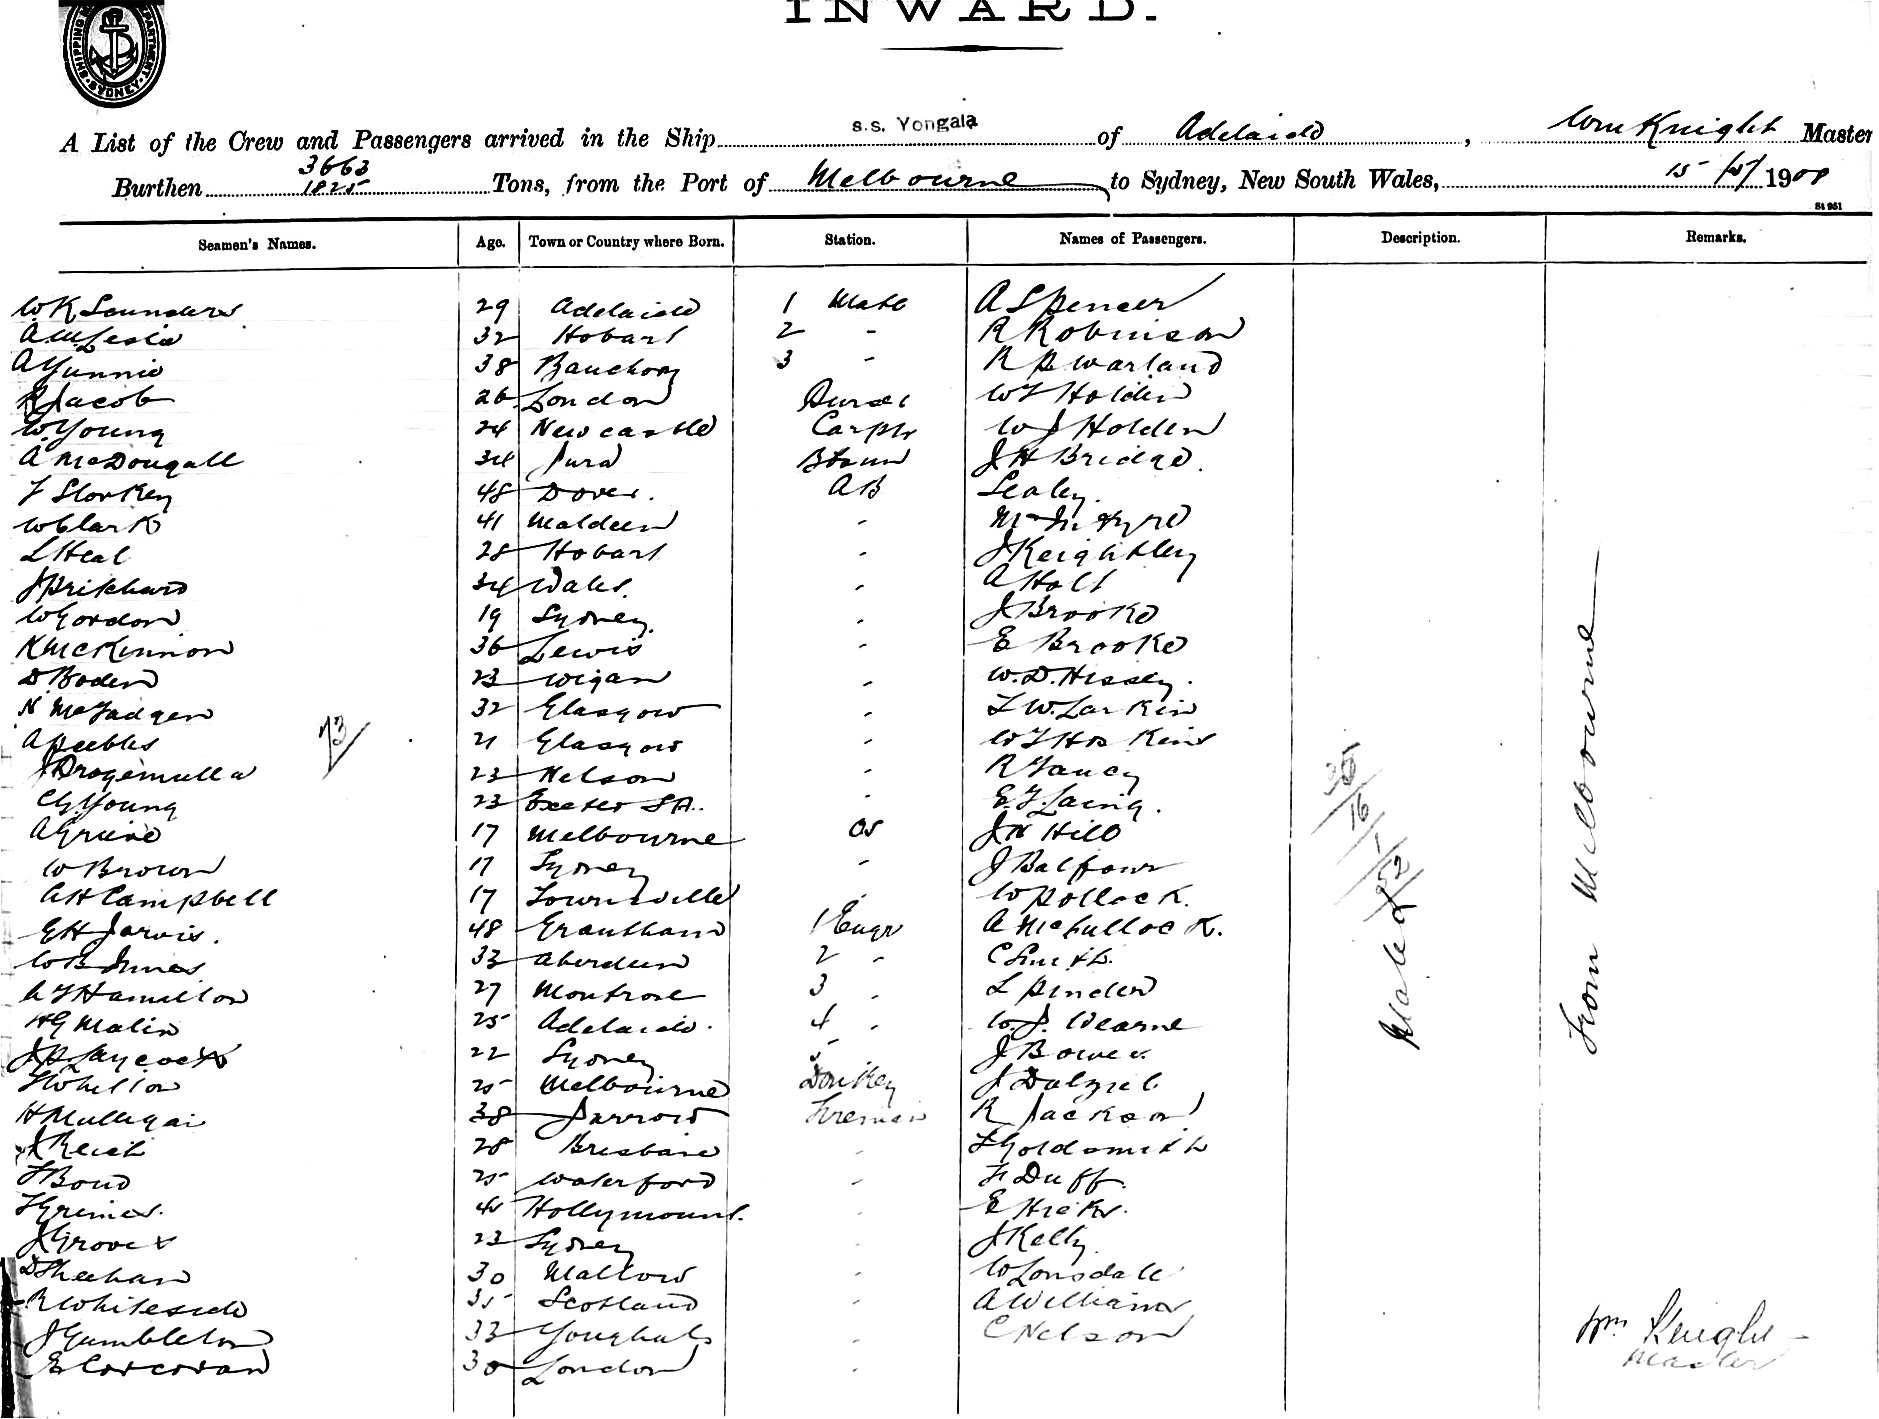 INWARD.
SYDNEY
A List of the Crew and Passengers arrived in the Ship s.s. Yongala of Adelaide, Wm Knight Master
3663
Burthen 1825 Tons, from the Port of Melbourne to Sydney, New South Wales, 15/5/1908
St 951
Seamen's Names. Age. Town or Country where Born. Station. Names of Passengers. Description. Remarks.
W K Saunders 29 Adelaide 1 Mate A Spencer
A W Leslie 32 Hobart 2 - R Robinson
A Gunnie 38 Banchory 3 - R P Warland
R Jacob 26 London Purser W T Holden
W Young 24 Newcastle Carptr W J Holden
A McDougall 34 Jura J H Bridge.
T Storkey 48 Dover. A B Sealey.
W Clark 41 Malden - McIntyre
L Heal 28 Hobart - J Keighley
J Prichard 34 Wales. - A Holt
W Gordon 19 Sydney. - J Brooke
K McKinnon 36 Lewis - E Brooke
D Boden 23 Wigan - W. D. Hissey.
N McFadgen 32 Glasgow - T W. Larkin
73
A Peebles 21 Glasgow - W T Hoskins
J Drogemulla 23 Nelson - R Yancy
C G Young 23 Exeter S A. - E. T. Laing.
A Greive 17 Melbourne OS J H Hill
W Brown 17 Sydney - J Balfour
A H Campbell 17 Townsville - W Pollock.
E H Jarvis. 48 Grantham 1 Engr A McCullock.
W B Innes 33 Aberdeen 2 - C Smith.
A T Hamilton 27 Montrose 3 - L Pinder
H G Malin 25 Adelaide. 4 - W. J. Wearne
J P Laycock 22 Sydney 5 J Bower
T Whelton 25 Melbourne Donkey J Dalziel
H Mulligan 38 Jarrow Fireman R Jackson
J Reid 28 Brisbane - T Goldsmith
T Bond 25 Waterford - F Duff.
T Grimes. Hollymount. - E Hicks.
J Groves 23 Sydney - J Kelly.
D Sheehan 30 Mallow - W Lonsdale
R Whiteside 35 Scotland - A Williams
J Gumbleton 33 Youghal - C Nelson
E Corcoran 30 London -
35
16
1
52
From Melbourne
Wm Knight
Master